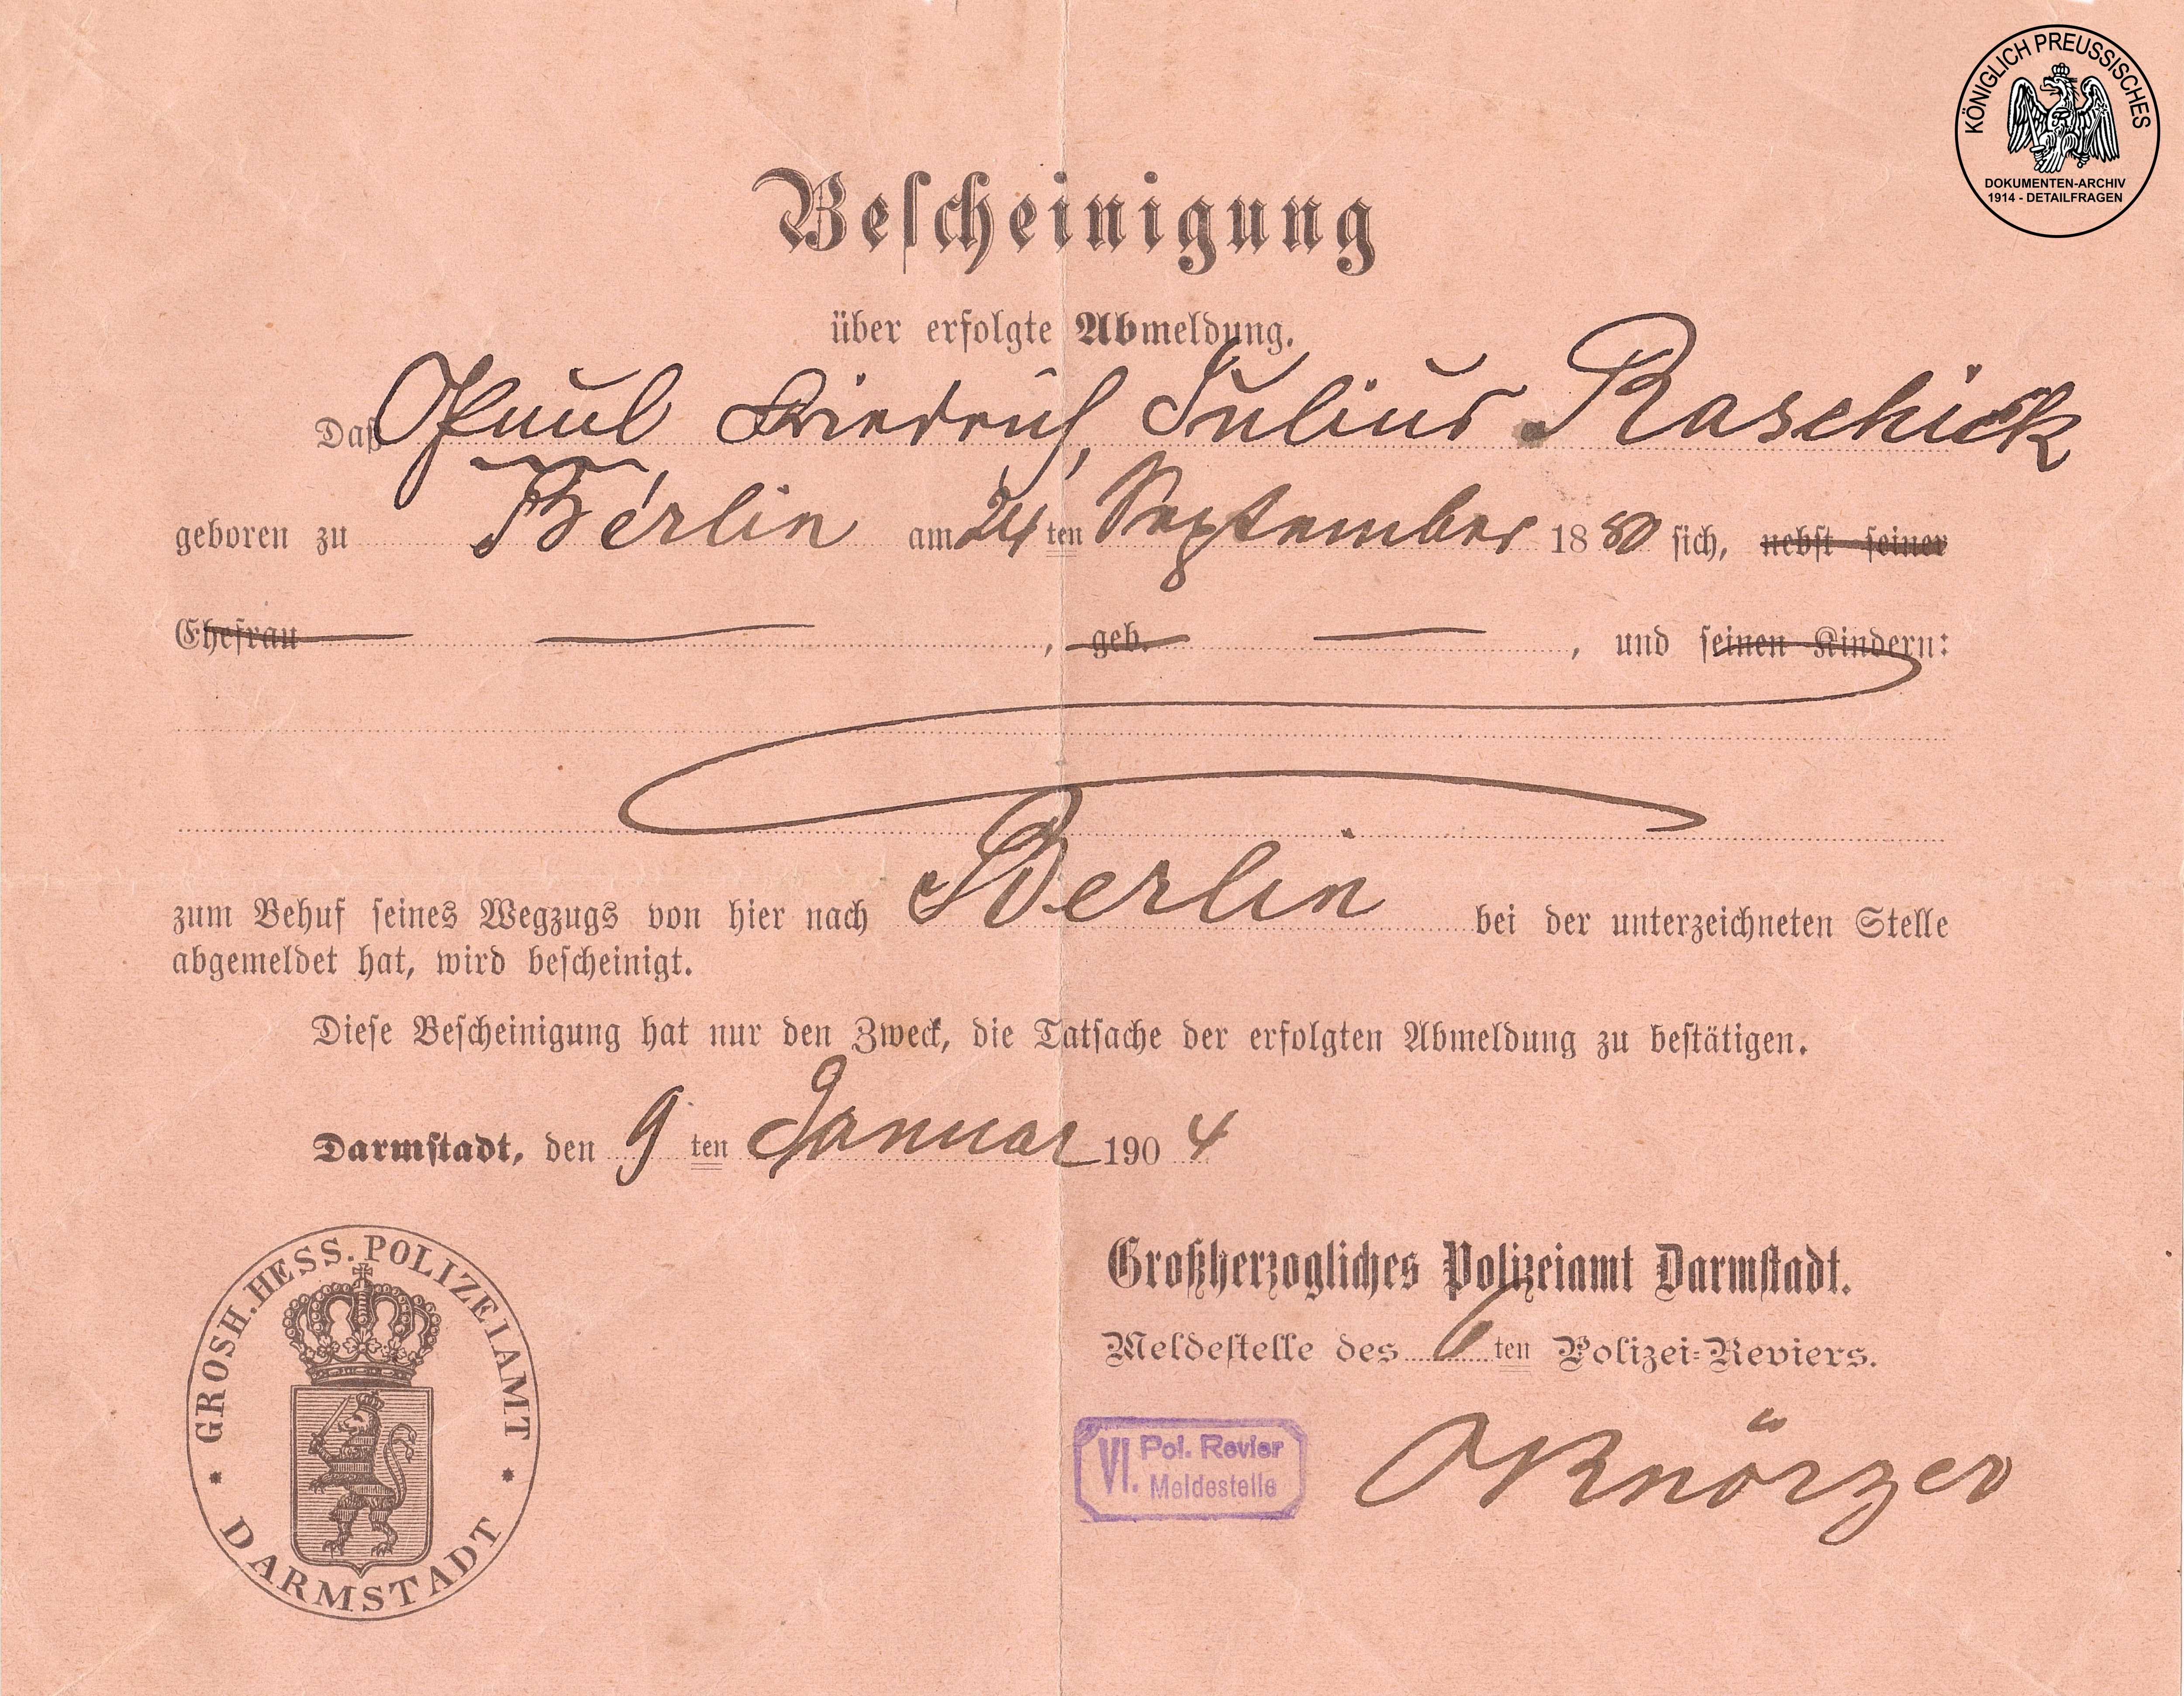 KÖNIGLICH PREUSSISCHES
DOKUMENTEN-ARCHIV
1914 - DETAILFRAGEN
Bescheinigung
über erfolgte Abmeldung.
Daß Paul Friedrich Julius Raschick
geboren zu Berlin am 24ten September 1880 sich, nebst seiner
Ehefrau , geb. , und seinen Kindern:
zum Behuf seines Wegzugs von hier nach Berlin bei der unterzeichneten Stelle
abgemeldet hat, wird bescheinigt.
Diese Bescheinigung hat nur den Zweck, die Tatsache der erfolgten Abmeldung zu bestätigen.
Darmstadt, den 9ten Januar 1904
GROSH. HESS. POLIZEIAMT
DARMSTADT
Großherzogliches Polizeiamt Darmstadt.
Meldestelle des 6ten Polizei-Reviers.
VI. Pol. Revier
Meldestelle
Knörzer